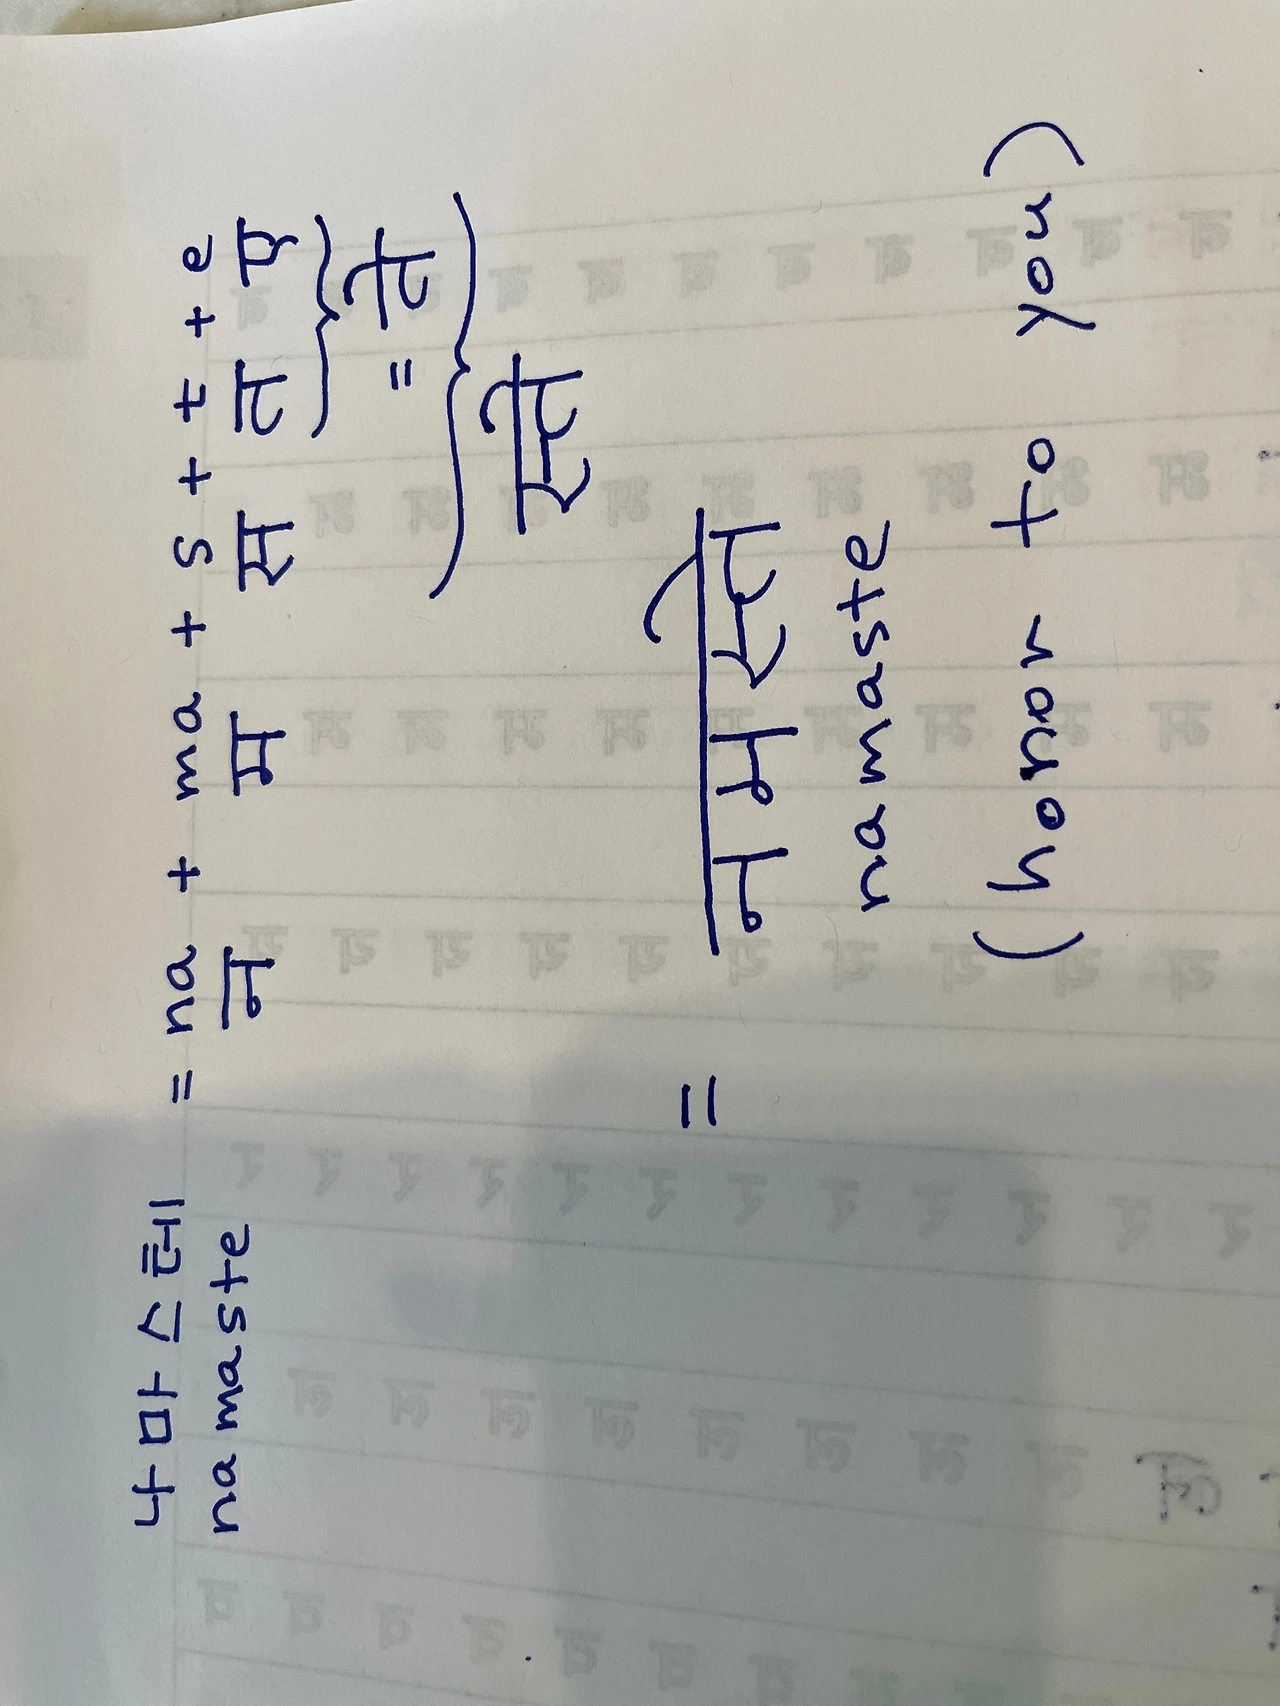 나마스테 = na + ma + s + t + e
namaste न म स त ए
= ते
स्ते
= नमस्ते
namaste
(honor to you)